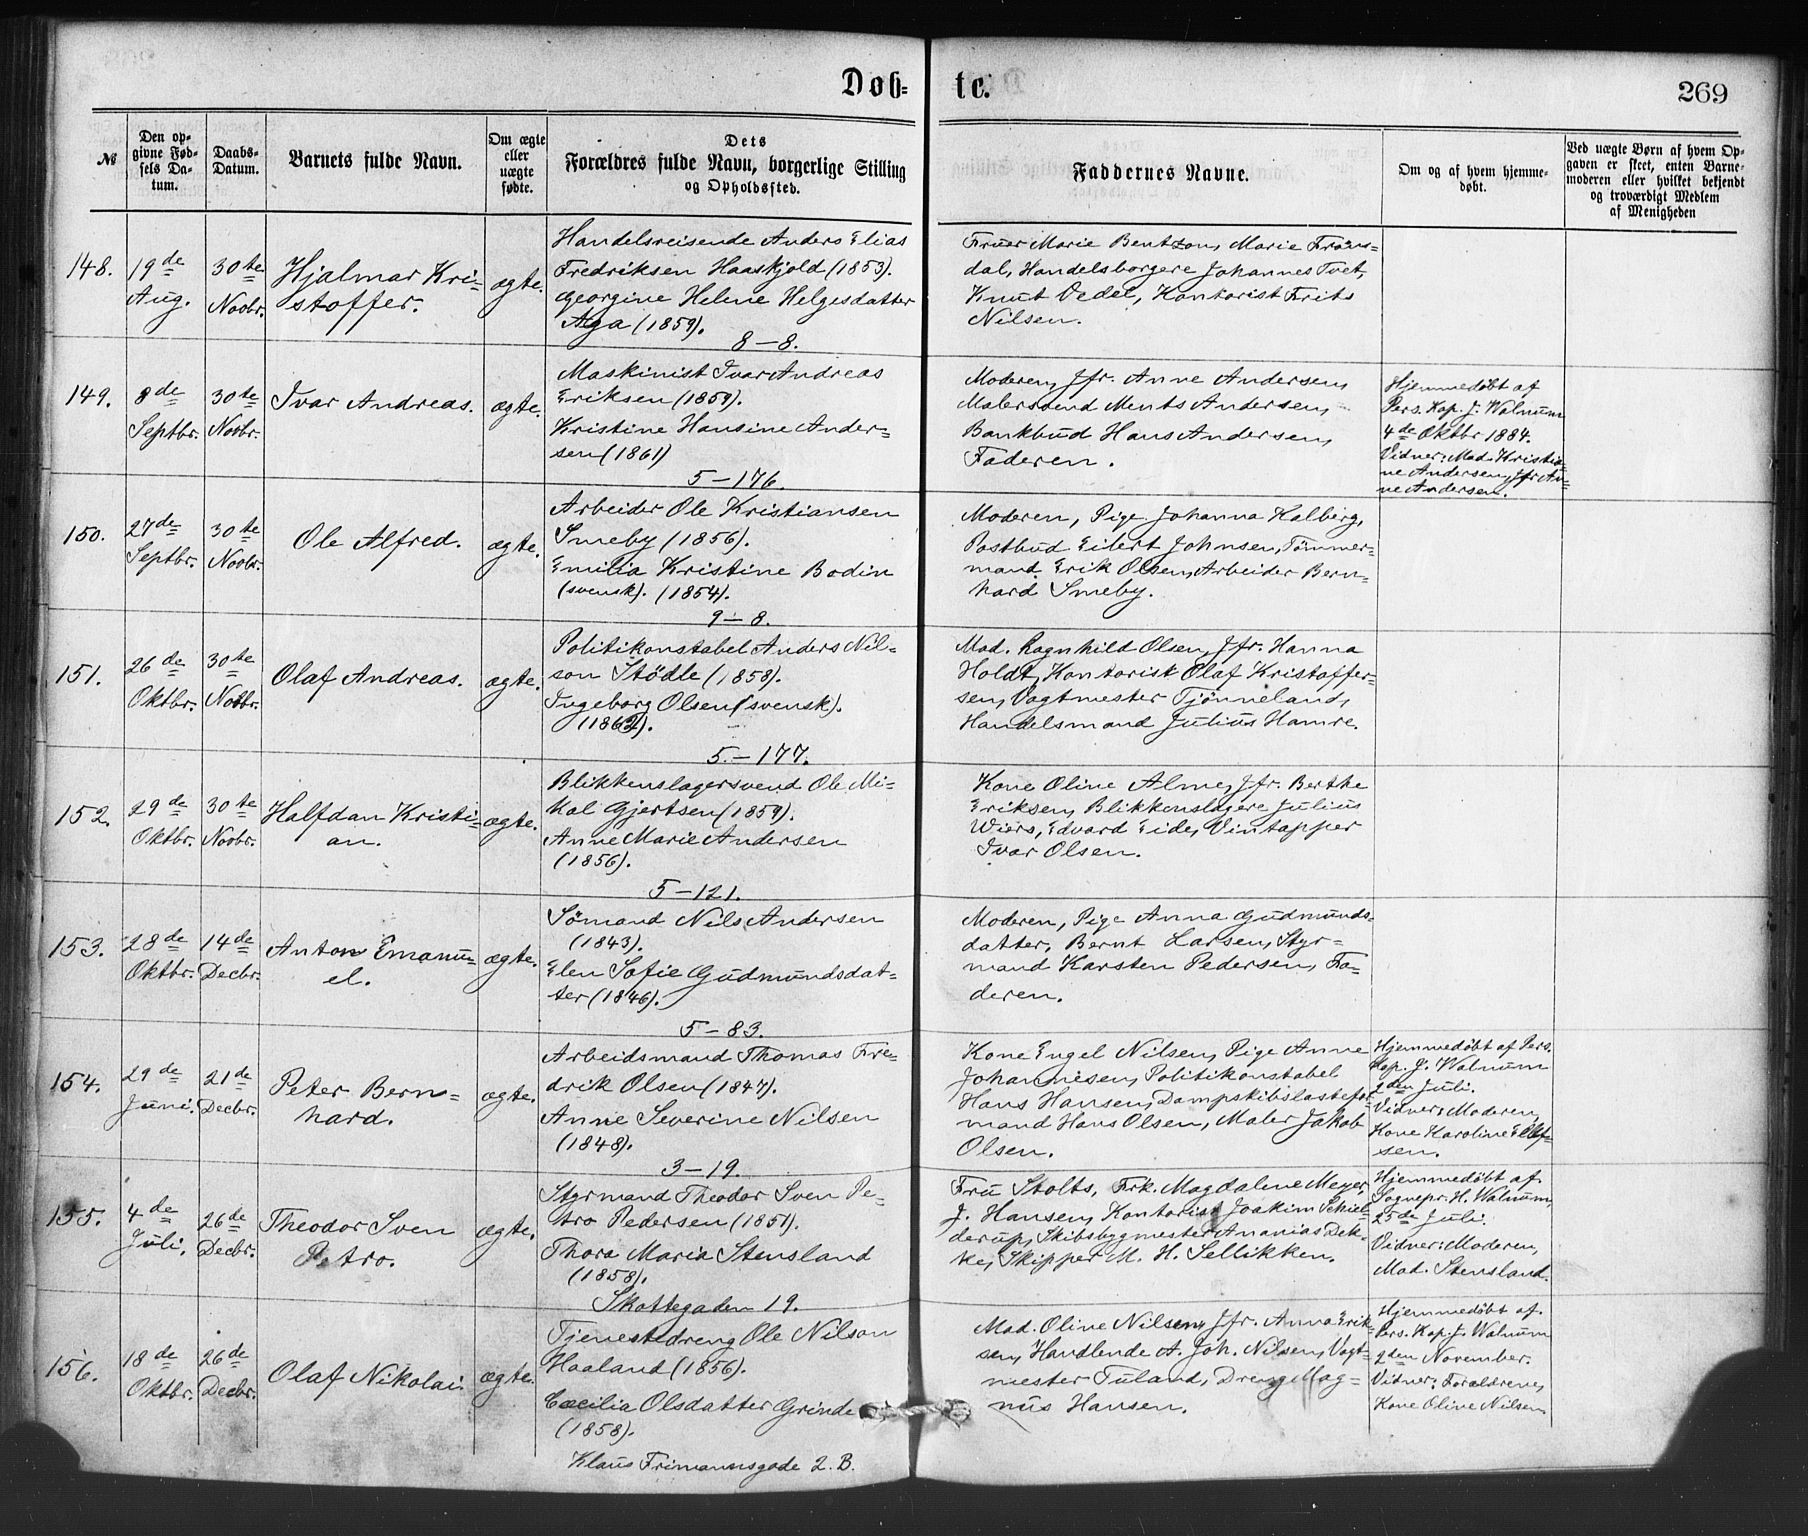 Døb-
te.
269
№
Den op-
givne Fød-
sels Da-
tum.
Daabs-
Datum.
Barnets fulde Navn.
Om ægte
eller
uægte
fødte.
Dets
Forældres fulde Navn, borgerlige Stilling
og Opholdssted.
Faddernes Navne.
Om og af hvem hjemme-
døbt.
Ved uægte Børn af hvem Op-
gaven er skeet, enten Barne-
moderen eller hvilket bekjendt
og troværdigt Medlem
af Menigheden
148.
19de
Aug.
30te
Novbr.
Hjalmar Kri-
stoffer.
ægte.
Handelsreisende Anders Elias
Fredriksen Haaskjold (1853).
Georgine Helene Helgesdatter
Aga (1859).
8-8.
Fruer Marie Bentzon, Marie Fröns-
dal, Handelsborgere Johannes Tvet,
Knut Dedel, Kontorist Frits
Nilsen.
149.
8de
Septbr.
30te
Novbr.
Ivar Andreas.
ægte.
Maskinist Ivar Andreas
Eriksen (1859).
Kristine Hansine Ander-
sen (1861)
5-176.
Moderen, Jfr. Anne Andersen,
Malersvend Ments Andersen,
Bankbud Hans Andersen,
Faderen.
Hjemmedøbt af
Pers. Kap. J. Walnum
4de Oktbr 1884.
Vidner: Mad. Kristia-
ne Andersen, Jfr An-
ne Andersen.
150.
27de
Septbr.
30te
Novbr.
Ole Alfred.
ægte.
Arbeider Ole Kristiansen
Smeby (1856).
Emilia Kristine Bodin
(svensk). (1854).
9-8.
Moderen, Pige Johanna Kalberg,
Postbud Eilert Johnsen, Tömmer-
mand Erik Olsen, Arbeider Bern-
hard Smeby.
151.
26de
Oktbr.
30te
Novbr.
Olaf Andreas.
ægte.
Politikonstabel Anders Nil-
son Stödle (1858).
Ingeborg Olsen (svensk).
(1862).
5-177.
Mad. Ragnhild Olsen, Jfr. Hanna
Holdt, Kontorist Olaf Kristoffer-
sen, Vagtmester Tjönneland,
Handelsmand Julius Hamre.
152.
29de
Oktbr.
30te
Novbr.
Halfdan Kristi-
an.
ægte.
Blikkenslagersvend Ole Mi-
kal Gjertsen (1859).
Anne Marie Andersen
(1856).
5-121.
Kone Oline Alme, Jfr. Berthe
Eriksen, Blikkenslagere Julius
Wiers, Edvard Eide, Vintapper
Ivar Olsen.
153.
28de
Oktbr.
14de
Decbr.
Anton Emanu-
el.
ægte.
Sömand Nils Andersen
(1843).
Elen Sofie Gudmundsdat-
ter (1846).
5-83.
Moderen, Pige Anna Gudmunds-
datter, Bernt Larsen, Styr-
mand Karsten Pedersen, Fa-
deren.
154.
29de
Juni.
21de
Decbr.
Peter Bern-
hard.
ægte.
Arbeidsmand Thomas Fre-
drik Olsen (1847).
Anne Severine Nilsen
(1848).
3-19.
Kone Engel Nilsen, Pige Anne
Johannesen, Politikonstabel
Hans Hansen, Dampskibslastefor-
mand Hans Olsen, Maler Jakob
Olsen.
Hjemmedøbt af Pers.
Kap. J. Walnum
2den Juli.
Vidner: Moderen,
Kone Karoline
sen.
155.
4de
Juli.
26de
Decbr.
Theodor Sven
Petro.
ægte.
Styrmand Theodor Sven Pe-
tro Pedersen (1851).
Thora Maria Stensland
(1858).
Skottegaden 19.
Fru Stolts, Frk. Magdalene Meyer,
J. Hansen, Kontorist Joakim Schiel-
derup, Skibsbygmester Ananias Dek-
ke, Skipper M. H. Sellikken.
Hjemmedøbt af
Sognepr. H. Walnum,
25de Juli.
Vidner: Moderen,
Mad. Stensland.
156.
18de
Oktbr.
26de
Decbr.
Olaf Nikolai.
ægte.
Tjenestedreng Ole Nilson
Haaland (1856).
Cæcilia Olsdatter Grinde
(1858).
Klaus Frimannsgade 2. B.
Mad. Oline Nilsen, Jfr. Anna Erik-
sen, Handlende A. Joh. Nilsen, Vagt-
mester Tuland, Dreng Mag-
nus Hansen.
Hjemmedøbt af
Pers. Kap. J. Walnum
2den November.
Vidner: Forældrene,
Kone Oline Nilsen